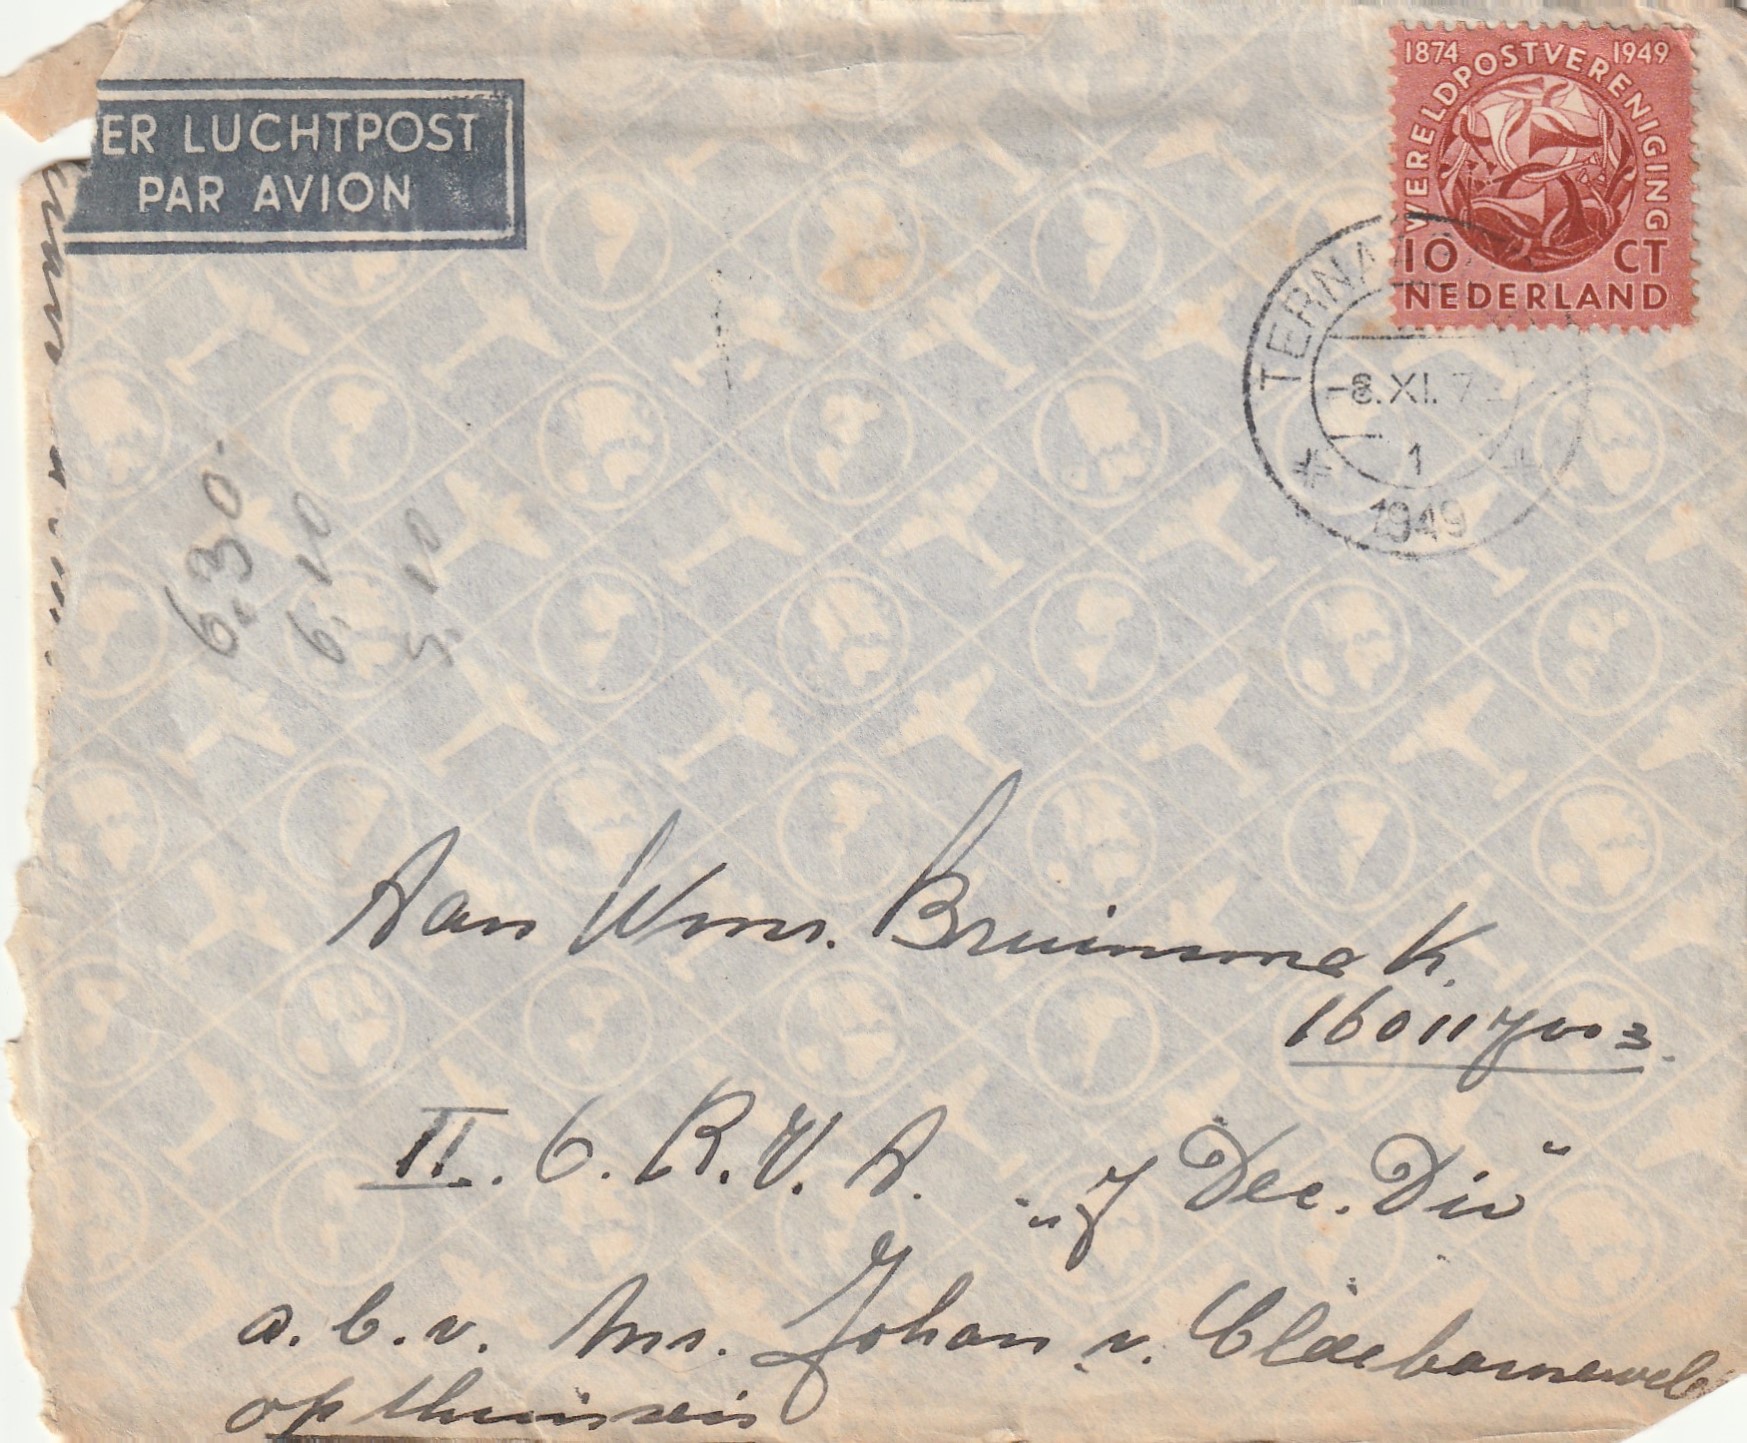 ER LUCHTPOST
PAR AVION
1874 WERELDPOSTVERENIGING 1949
10 CT
NEDERLAND
TERNA
-8.XI.7
1
1949
6.30.
6.10
5.10
Aan Wmr. Bruinsma K.
160117003.
II. 6. R.V.A. „7 Dec. Div"
a.b.v. Ms. Johan v. Oldebarnevel
op thuisreis